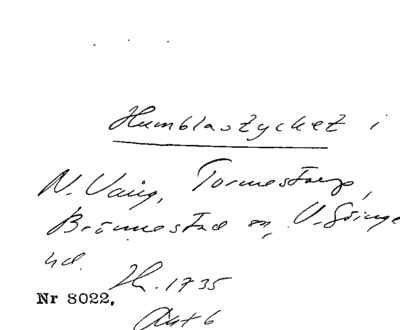 Humblastycket i
N. Vång, Tormestorp,
Brönnestad sn, V. Göinge
hd. Hr. 1735
Nr 8022.
Akt 6